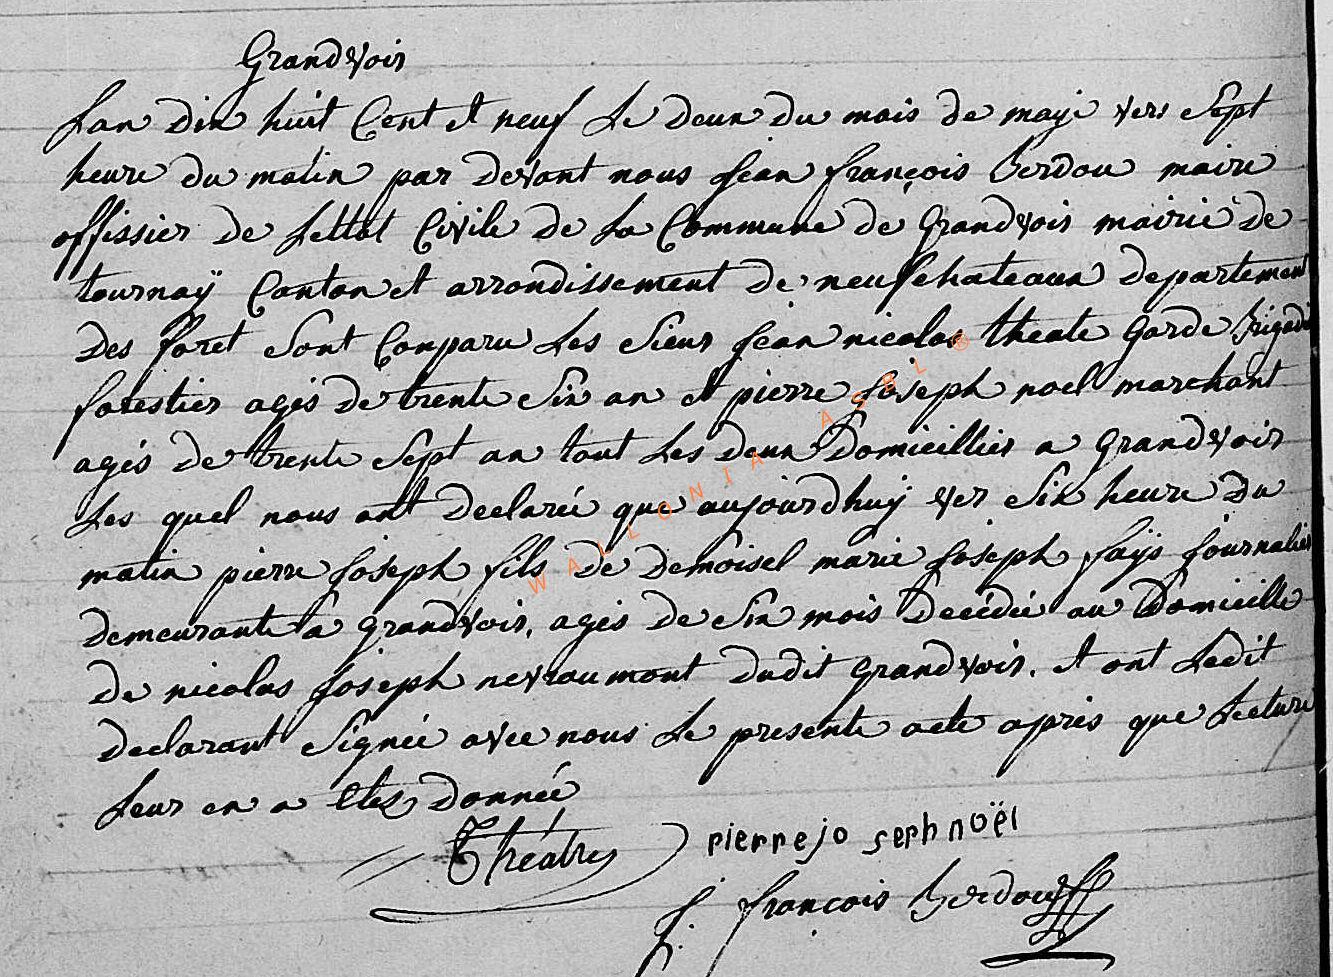 Grandvoir
Lan dix huit Cent et neuf Le deux du mois de maye vers Sept
heure du matin par devant nous jean françois Berdou maire
offissier de Lettat Civile de La Commune de Grandvoir mairie de
tournaÿ Canton et arrondissement de neufchateaux departement
Des foret Sont Conparu Les Sieur jean nicolas theate Garde Brigadi
forestier agés de trente Six an et pierre joseph noel marchant
agés de trente Sept an tout Les deux Domicillier a Grandvoir
Les quel nous ont declarée que aujourdhuÿ ver Six heure du
matin pierre joseph fils de demoisel marie joseph fays journalier
demeurante a grandvoir, agés de Six mois Decédée au Domicille
de nicolas joseph nevraumont dudit grandvoir. et ont Ledit
declarant Signée avec nous Le presente acte aprés que Lecture
Leur en a Etez donnée
Théatre
pierre jo seph noël
j. françois Berdou
WALLONIA ASBL ®